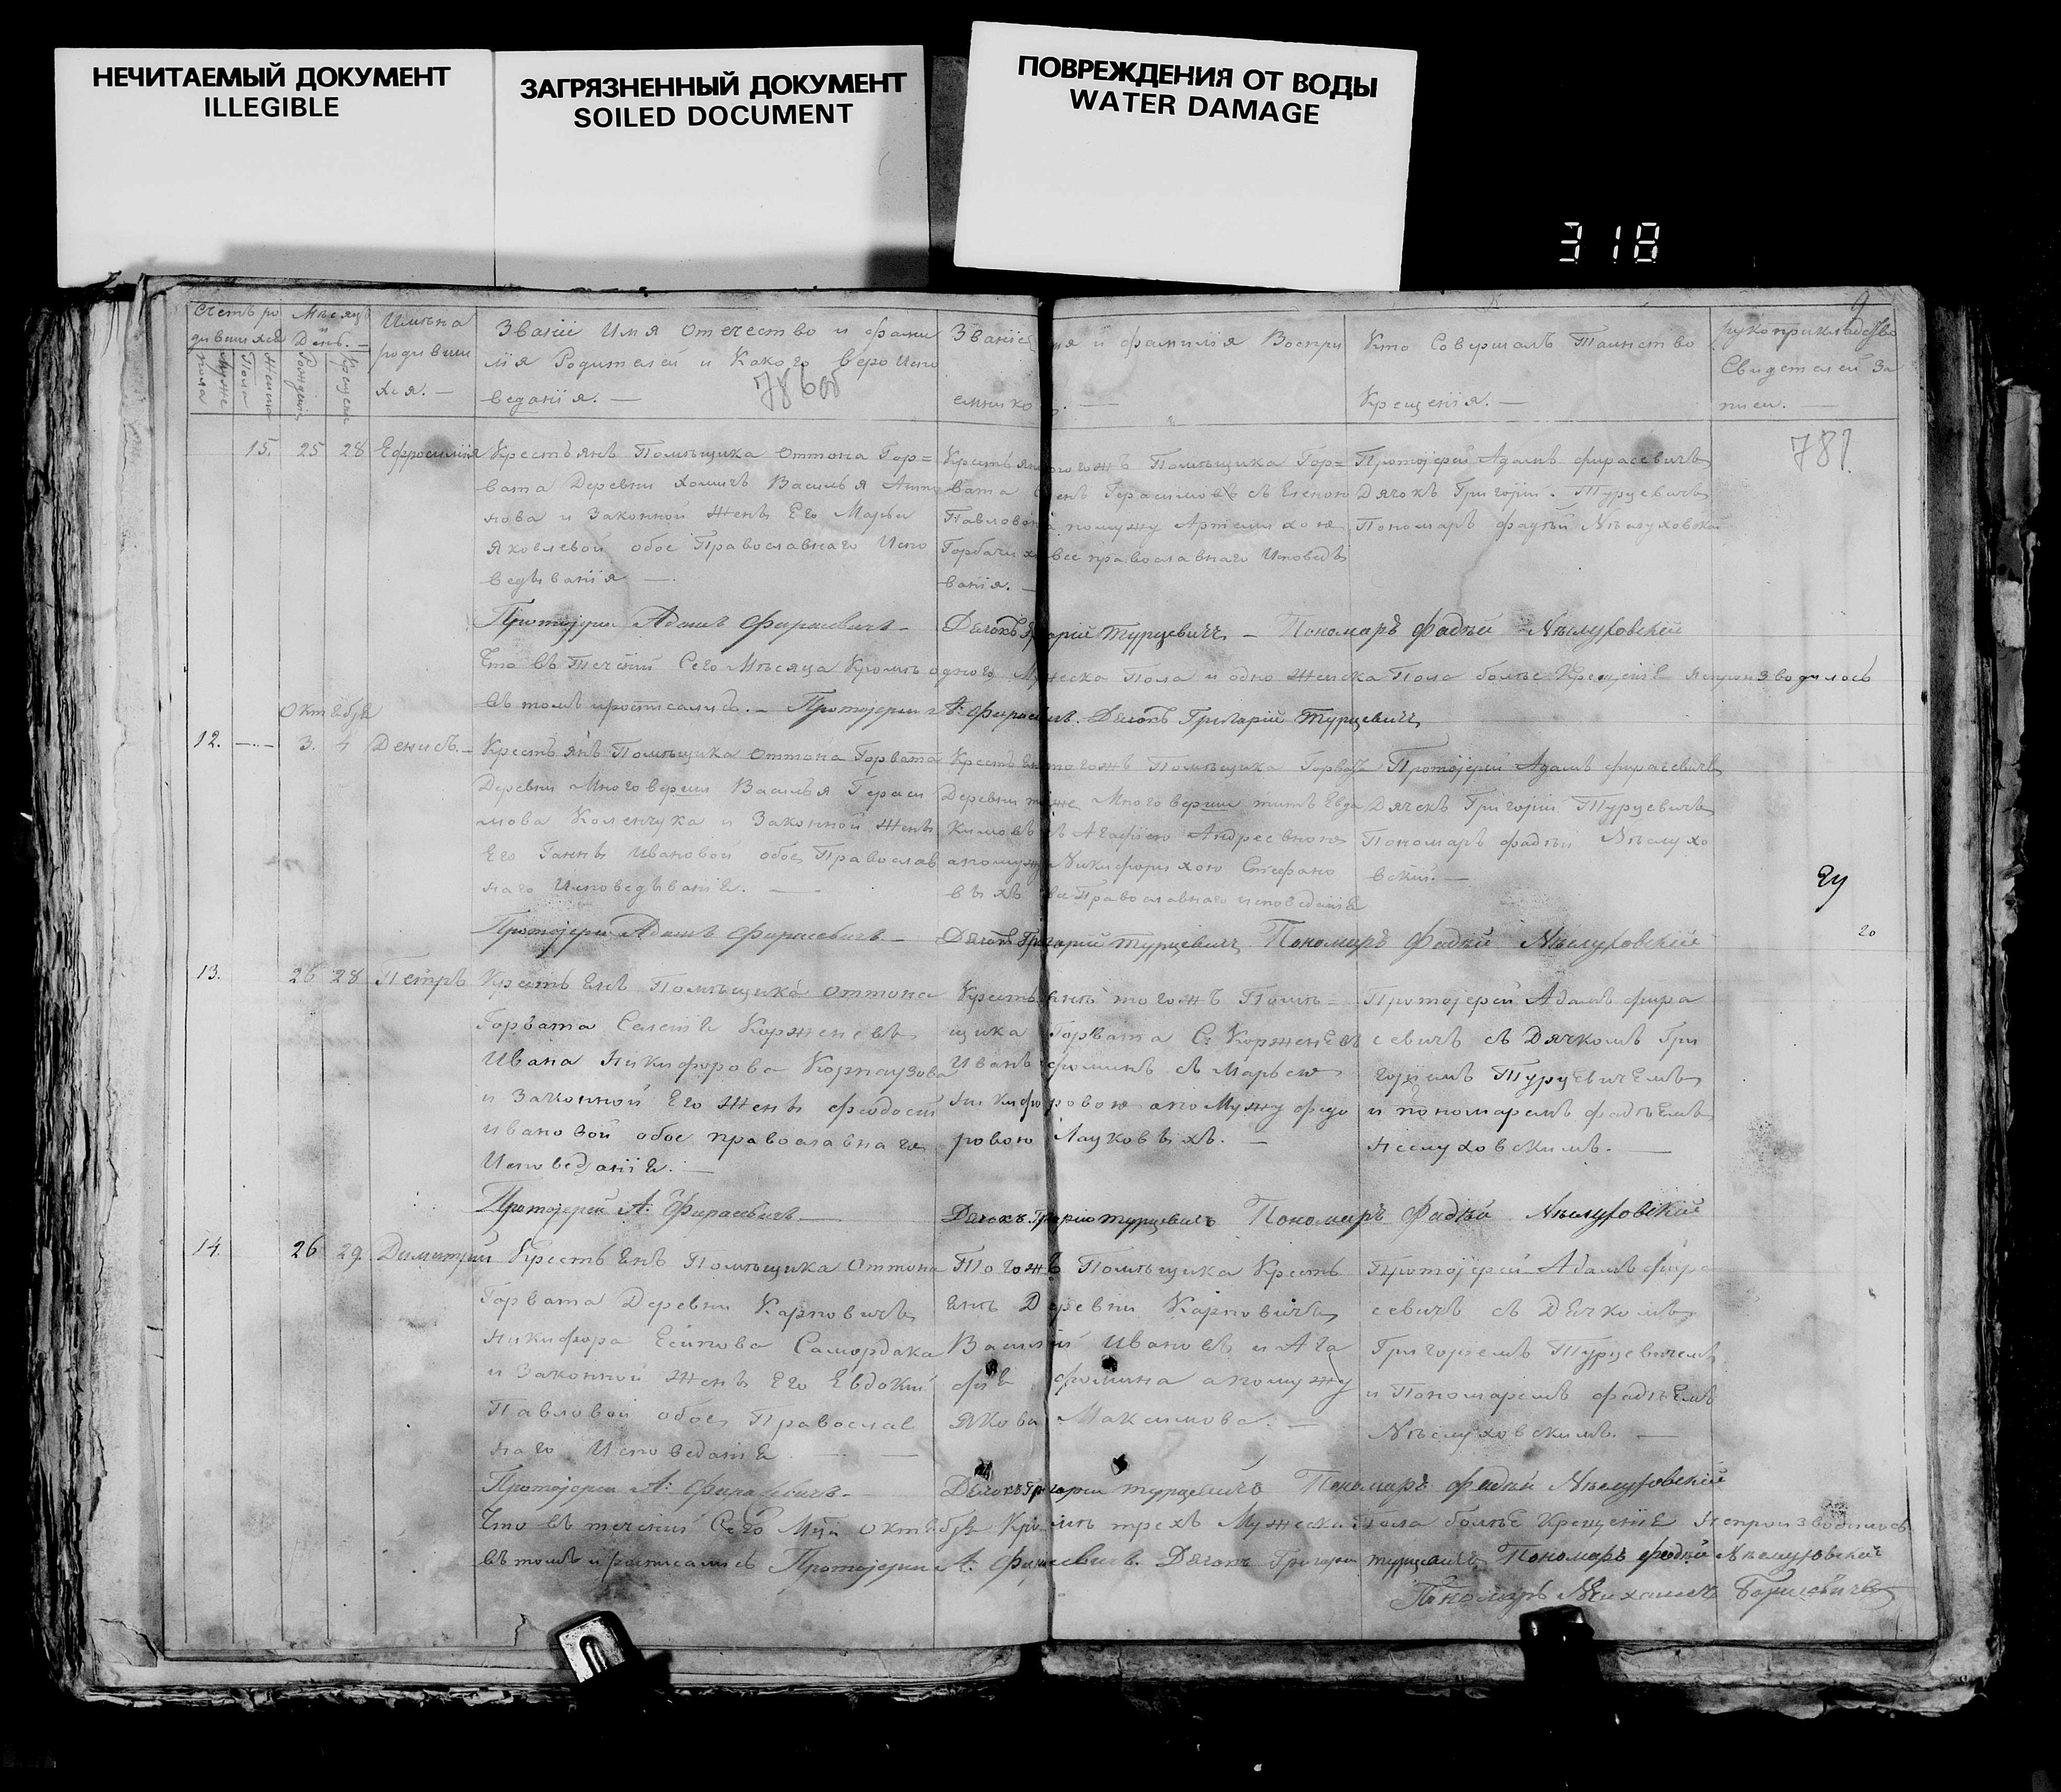 НЕЧИТАЕМЫЙ ДОКУМЕНТ
ILLEGIBLE
ЗАГРЯЗНЕННЫЙ ДОКУМЕНТ
SOILED DOCUMENT
ПОВРЕЖДЕНИЯ ОТ ВОДЫ
WATER DAMAGE
318
9
Счетъ ро
дившихся
Мужс
пола
Женска
Пола
Мѣсяцъ
День.
Рожденія
Крещенія
Имѣна
родивши
хся. —
Званіе Имя Отечество и фами
лія Родителей и Какого вероиспо
веданія. —
Званіе имя и фамилія Воспри
емнико
Кто Совершалъ Таинство
Крещенія. —
рукоприкладство
Свидетелей За
писи.
781
15. 25 28 Ефросинія
Крестьянъ Помѣщика Оттона Гор=
вата Деревни Хомичъ Василья Анто
нова и Законной Женѣ Его Марьи
Яковлевой обое Православнаго Испо
ведыванія —.
Павловою помужу
Горбачи все православнаго Исповеды
ванія. —
Протоіерей Адамъ фирасевичъ
Дячокъ Григорій Турцевичъ
Пономаръ фадѣй Нѣслуховскій
Протоіерей Адамъ Фирасевичъ — Дячокъ Григорій Турцевичъ — Пономаръ Фадѣй Нѣслуховскій
Что въ Теченіи Сего Мѣсяца Кромѣ одного Мужеска Пола и одно Женска Пола болѣе Крещеніе непроизводилось
въ томъ и росписались. — Протоіерей А. Фирасевичъ. Дячокъ Григорій Турцевичъ
Октебря
12. —.— 3. 4 Денисъ. —
Крестьянъ Помѣщика Оттона Горвата
Деревни Многоверши Василья Гераси
мова Коленчука и Законной Женѣ
Его Ганнѣ Ивановой обое Православ
наго Исповедываніе. —
Крестьянъ тогожъ Помѣщика Горвата
Деревни тоже Многоверши титъ Евдо
кимовъ съ Агафіею Андреевною
апомужу Никифорихою Стефано
выхъ все Православнаго исповеданіе
Протоіерей Адамъ фирасевичъ
Дячекъ Григорій Турцевичъ
Пономаръ фадѣи Нѣслухо
вскій. —
20
Протоіерей Адамъ Фирасевичъ — Дячокъ Григорій Турцевичъ Пономаръ Фадѣй Нѣслуховскій
13. 26 28 Петръ
Крестьенъ Помѣщика Оттона
Горвата Селеніе Корженевъ
Ивана Никифорова
и Законной Его Женѣ феодосіи
Ивановой обое православнаго
Исповеданіе. —
Крестьенъ тогожъ Помѣ=
щика Горвата С: Корженевъ
Иванъ фоминъ съ Марьею
Никифоровою апомужу федо
ровою Лауковыхъ. —
Протоіерей Адамъ фира
севичъ съ Дячкомъ Гри
горіемъ Турцевичемъ
и пономаремъ фадѣемъ
Неслуховскимъ. —
Протоіерей А. Фирасевичъ — Дячокъ Григорій Турцевичъ Пономаръ Фадѣй Нѣслуховскій
14. 26 29. Димитрій
Крестьенъ Помѣщика Оттона
Горвата Деревни Карповичъ
Никифора Есипова Самордака
и Законной Женѣ Его Евдокіи
Павловой обое Православ
наго Исповеданіе —
Тогожъ Помѣщика Кресть
енъ Деревни Карповичъ
Василій Ивановъ и Ага
фіе фомина апомужу
Якова Максимова. —
Протоіерей Адамъ фира
севичъ съ Дечкомъ
Григоріемъ Турцевичемъ
и Пономаремъ фадѣемъ
Нѣслуховскимъ. —
Протоіерей А. Фирасевичъ. — Дячокъ Григорій Турцевичъ Пономаръ Фадѣй Нѣслуховскій
Что въ теченіи Сего Мца Октебря Кромѣ трехъ Мужеска Пола болѣе Крещеніе непроизводилось
въ томъ и росписались Протоіерей А. Фирасевичъ. Дячокъ Григорій Турцевичъ Пономаръ Фадѣй Нѣслуховскій
Пономаръ Михаилъ